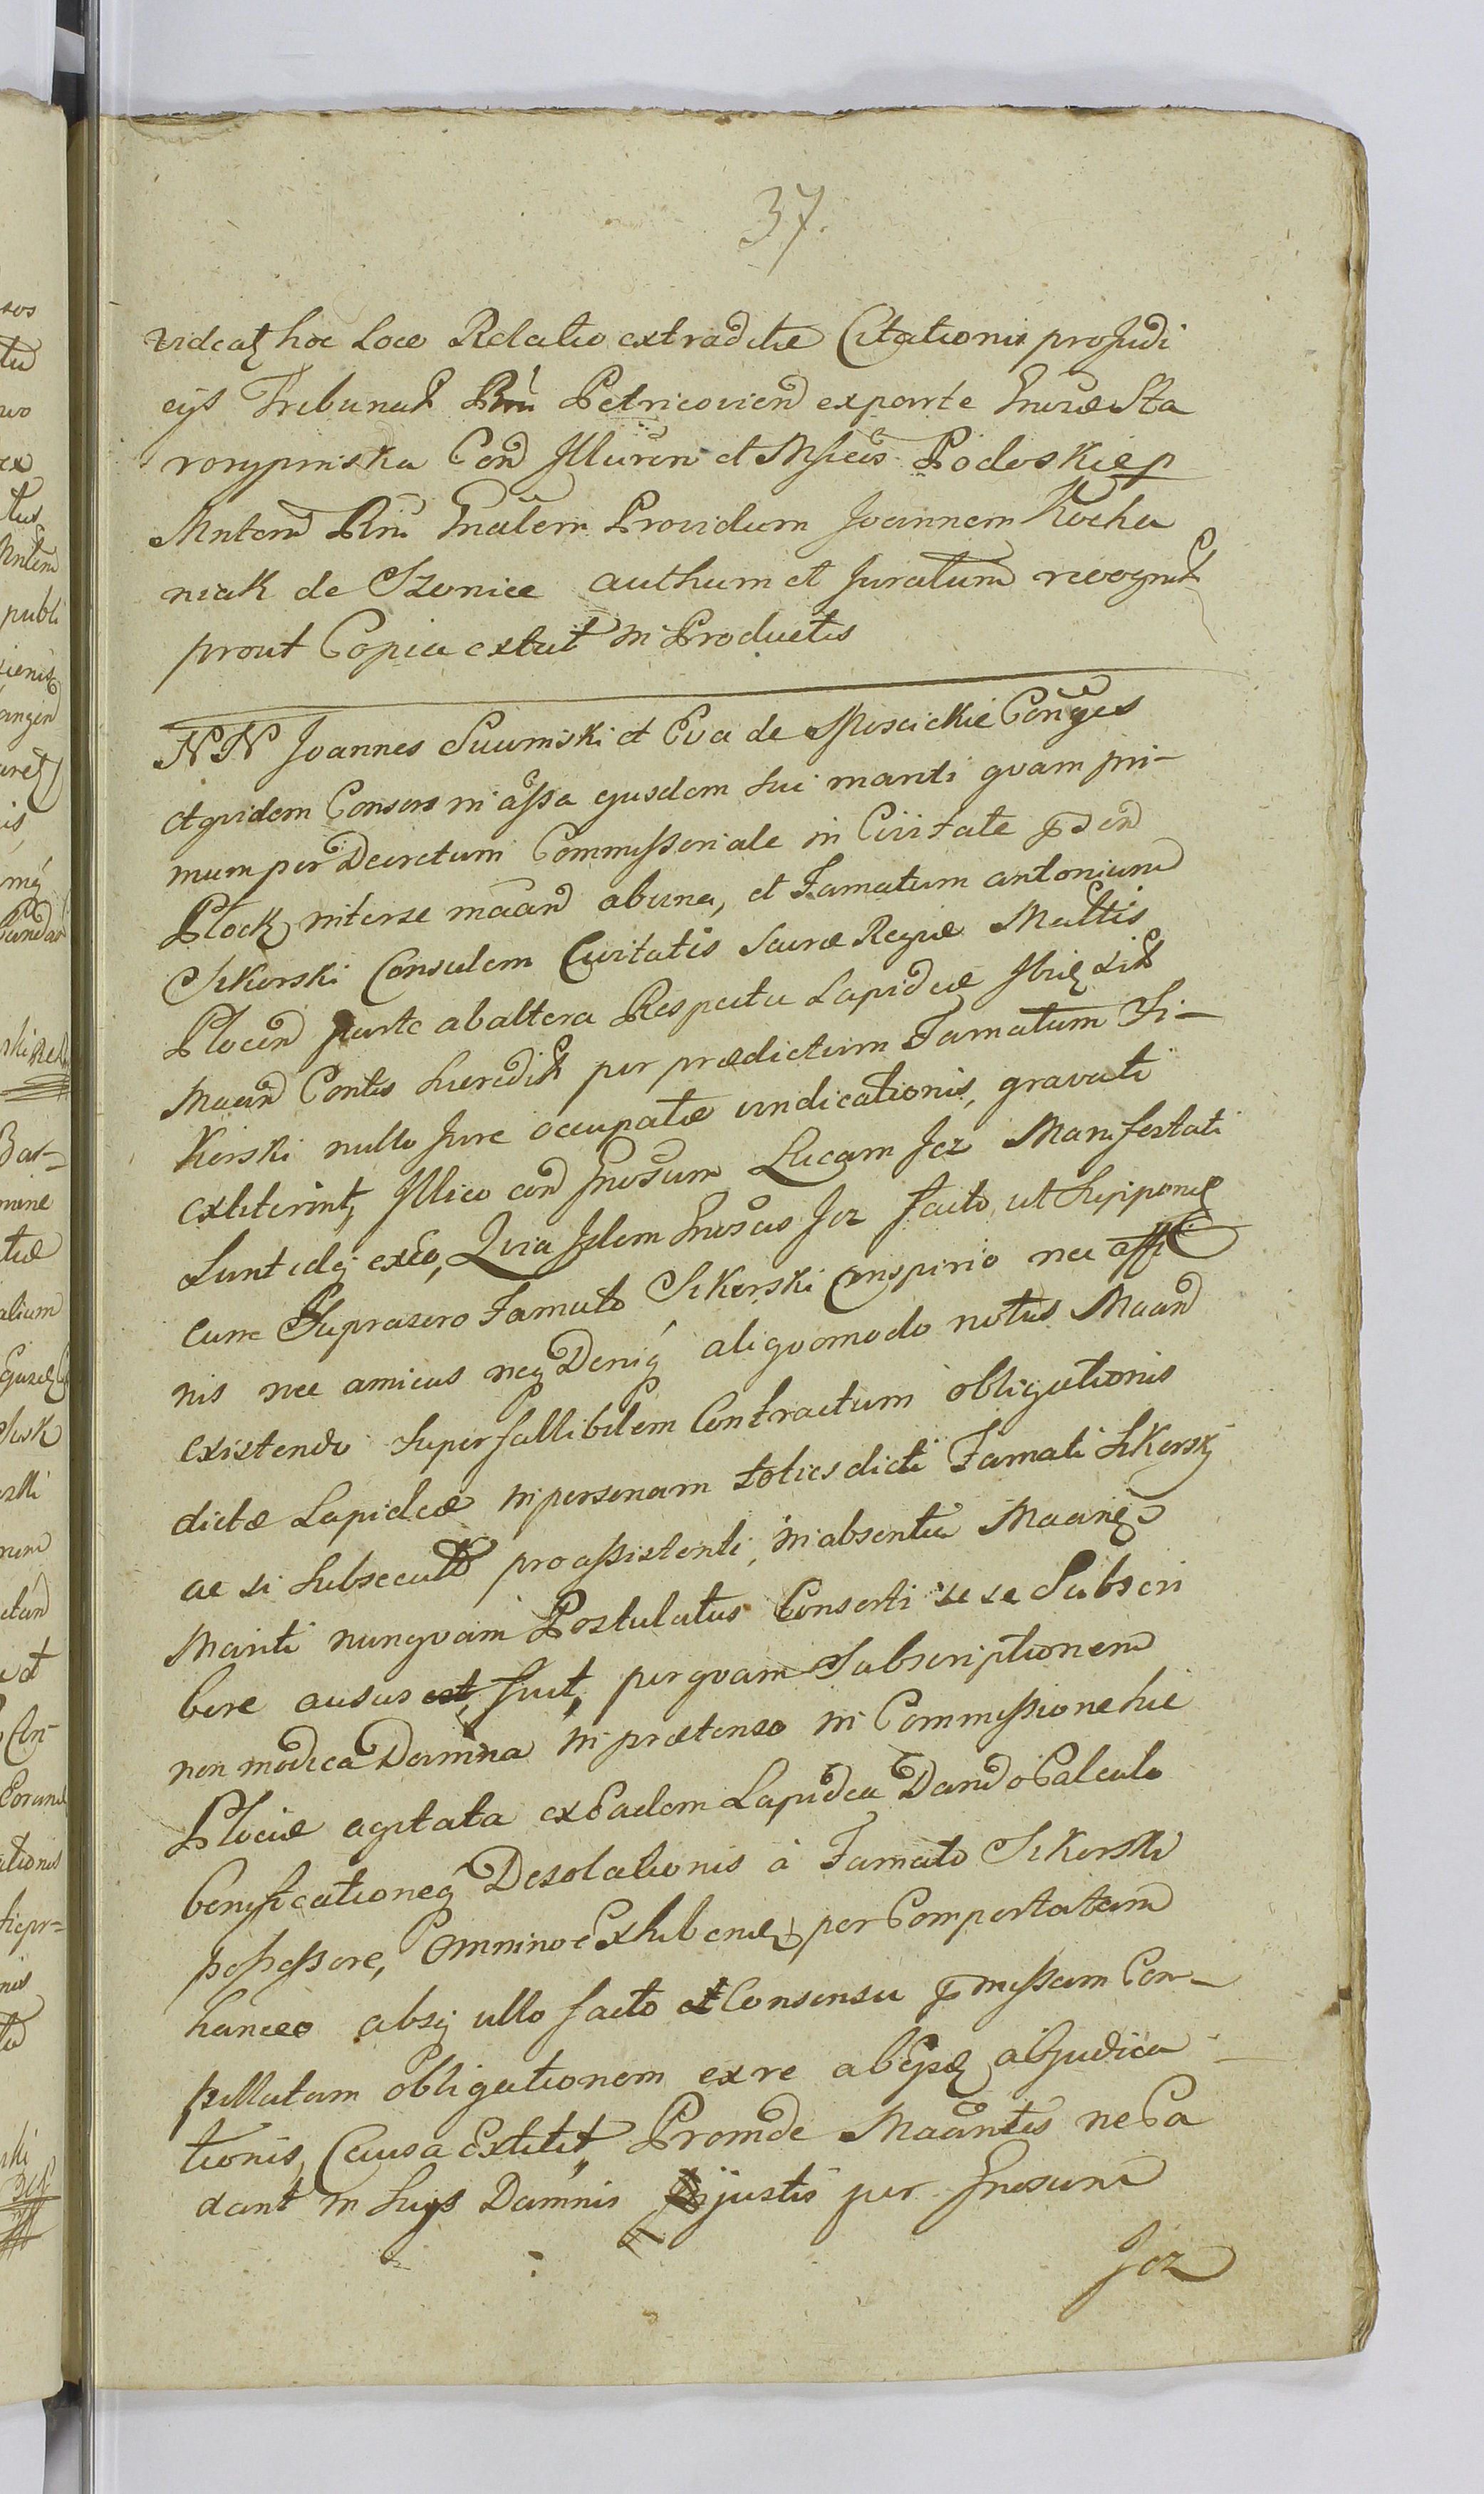 37.
videat hoc Loco Relatio extraditæ Citationis pro Judi
cijs Tribunal Rni Petricovien ex parte Gnosæ Sta
rorypinska Con Illuren et Mficos Podoskie p
Mntem Rni Gnalem Providum Joannem Kocha
niak de Szonice authum et Juratum recognit
prout Copia extat in Productis
NN Joannes Suumiski et Eva de Moscickie Conges
et quidem Consors in assa ejusdem sui mariti quam pri-
mum per Decretum Commissoriale in Civitate
Plock inter se maan ab una, et Famatum antonium
Sikorski Consulem Civitatis Sacræ Regiæ Mattis
Plocen parte ab altera Respectu Lapideæ Ibiq sit
Maan Contis hæredit per prædictum Famatum Si-
korski nullo Jure occupatæ vindicationis, gravati
extiterint, Illico con Gnosum Lucam Jez Manifestati
sunt idq exeo, Quia Idem Gnosus Jez facto, ut supponit
cum Suprazero Famato Sikorski Conspirio nec affi
nis nec amicus neq Deniq aliquomodo notus Maan
existendo super fallibilem Contractum obligationis
dictæ Lapideæ in personam toties dicti Famati Sikorskj
ac si subsecuto pro assistenti, in absentia Maanis
Mariti nunquam Postulatus Consorti se se Subscri
bere ausus est, fuit, per quam Subscriptionem
non modica Damna in prætenso in Commissione hic
Plociæ agitata ex Eadem Lapidea Dando Calculo
Benificationeq Desolationis à Famato Sikorski
possessore, Omnino Exhiben per Comportatam
hanceo absq ullo facto et Consensu missam Con-
pillatam obligationem ex re ab abjudica
tionis, Causa Extitit, Proinde Maantes ne Ca
dant in suijs Damnis justis per Gnosum
Jez